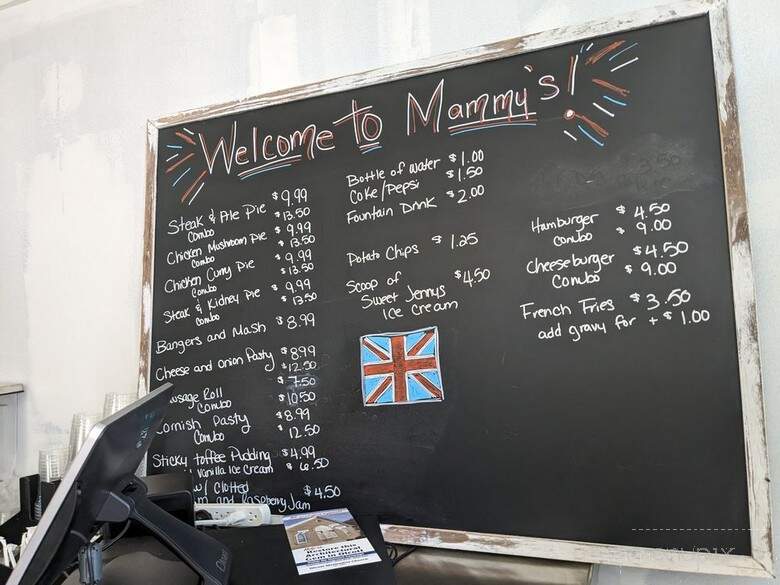 Welcome to Mammy's!
Steak & Ale Pie $9.99
Combo $13.50
Chicken Mushroom Pie $9.99
Combo $13.50
Chicken Curry Pie $9.99
Combo $13.50
Steak & Kidney Pie $9.99
Combo $13.50
Bangers and Mash $8.99
Cheese and Onion Pasty $8.99
$12.50
Roll $7.50
Combo $10.50
Pasty $8.99
Combo $12.50
Sticky toffee Pudding $4.99
Vanilla Ice Cream $6.50
w/ Clotted
and Raspberry Jam $4.50
Bottle of water $1.00
Coke/Pepsi $1.50
Fountain Drink $2.00
Potato Chips $1.25
Scoop of
Sweet Jennys $4.50
Ice Cream
Hamburger $4.50
Combo $9.00
Cheeseburger $4.50
Combo $9.00
French Fries $3.50
add gravy for + $1.00
Restore this
Architectural
Gem to Great